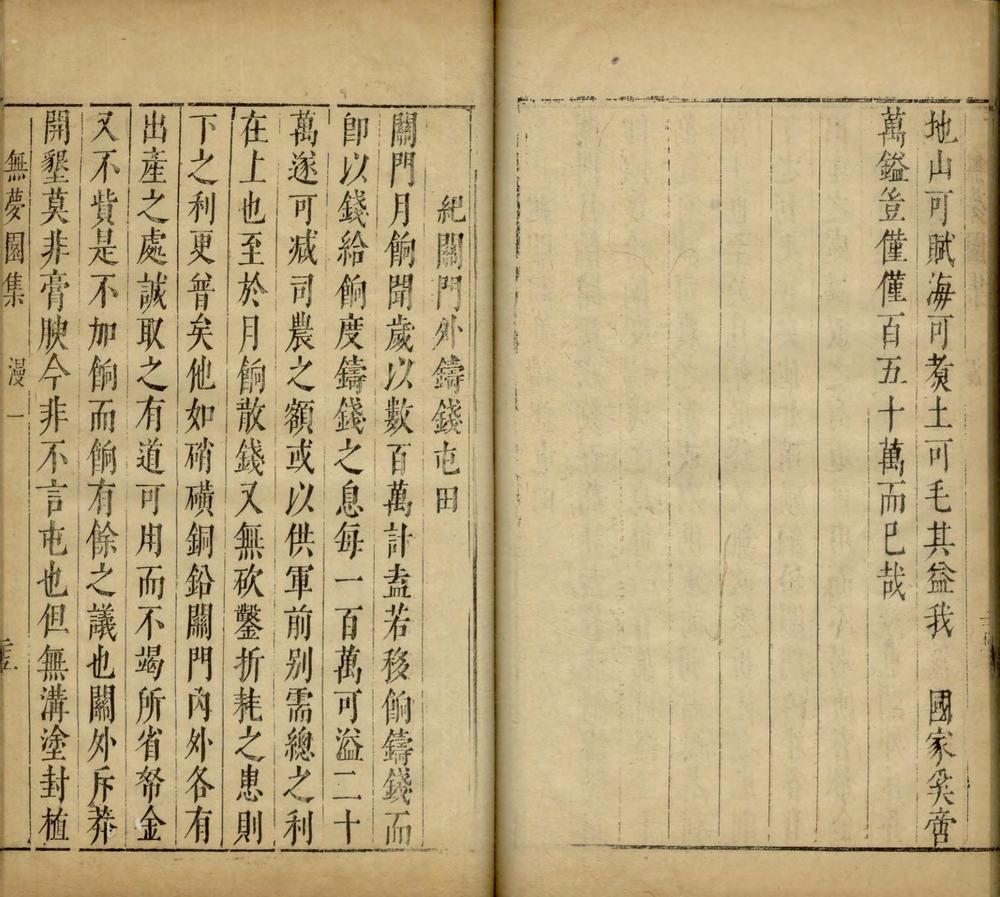 地山可賦海可煑土可毛其益我　國家奚啻
萬鎰豈僅僅百五十萬而已哉
紀關門外鑄錢屯田
關門月餉聞歲以數百萬計盍若移餉鑄錢而
即以錢給餉度鑄錢之息每一百萬可溢二十
萬遂可减司農之額或以供軍前别需總之利
在上也至於月餉散錢又無砍鑿折耗之患則
下之利更普矣他如硝磺銅鉛關門內外各有
出產之處誠取之有道可用而不竭所省帑金
又不貲是不加餉而餉有餘之議也關外斥莽
開墾莫非膏腴今非不言屯也但無溝塗封植
無夢園集　漫一